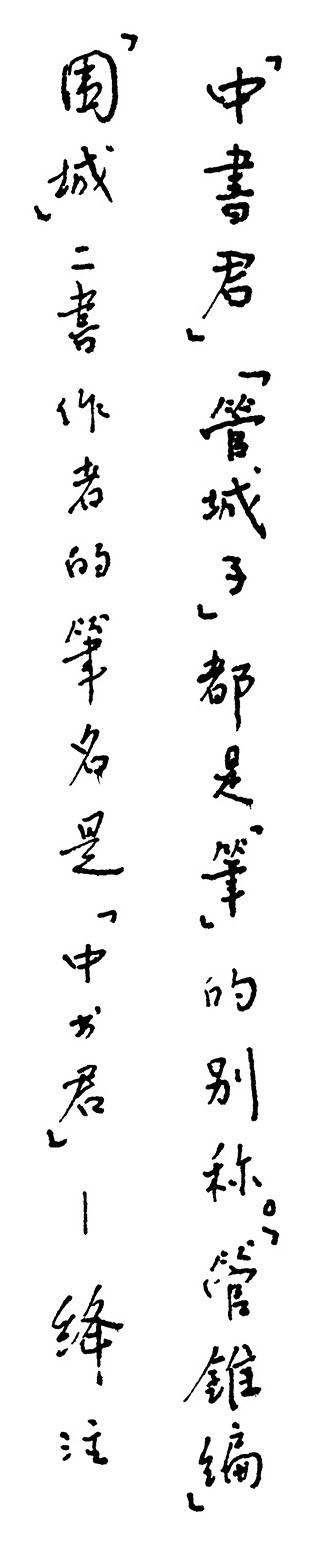 「中書君」「管城子」都是「筆」的别称。「管錐編」
「围城」二書作者的筆名是「中书君」—絳注